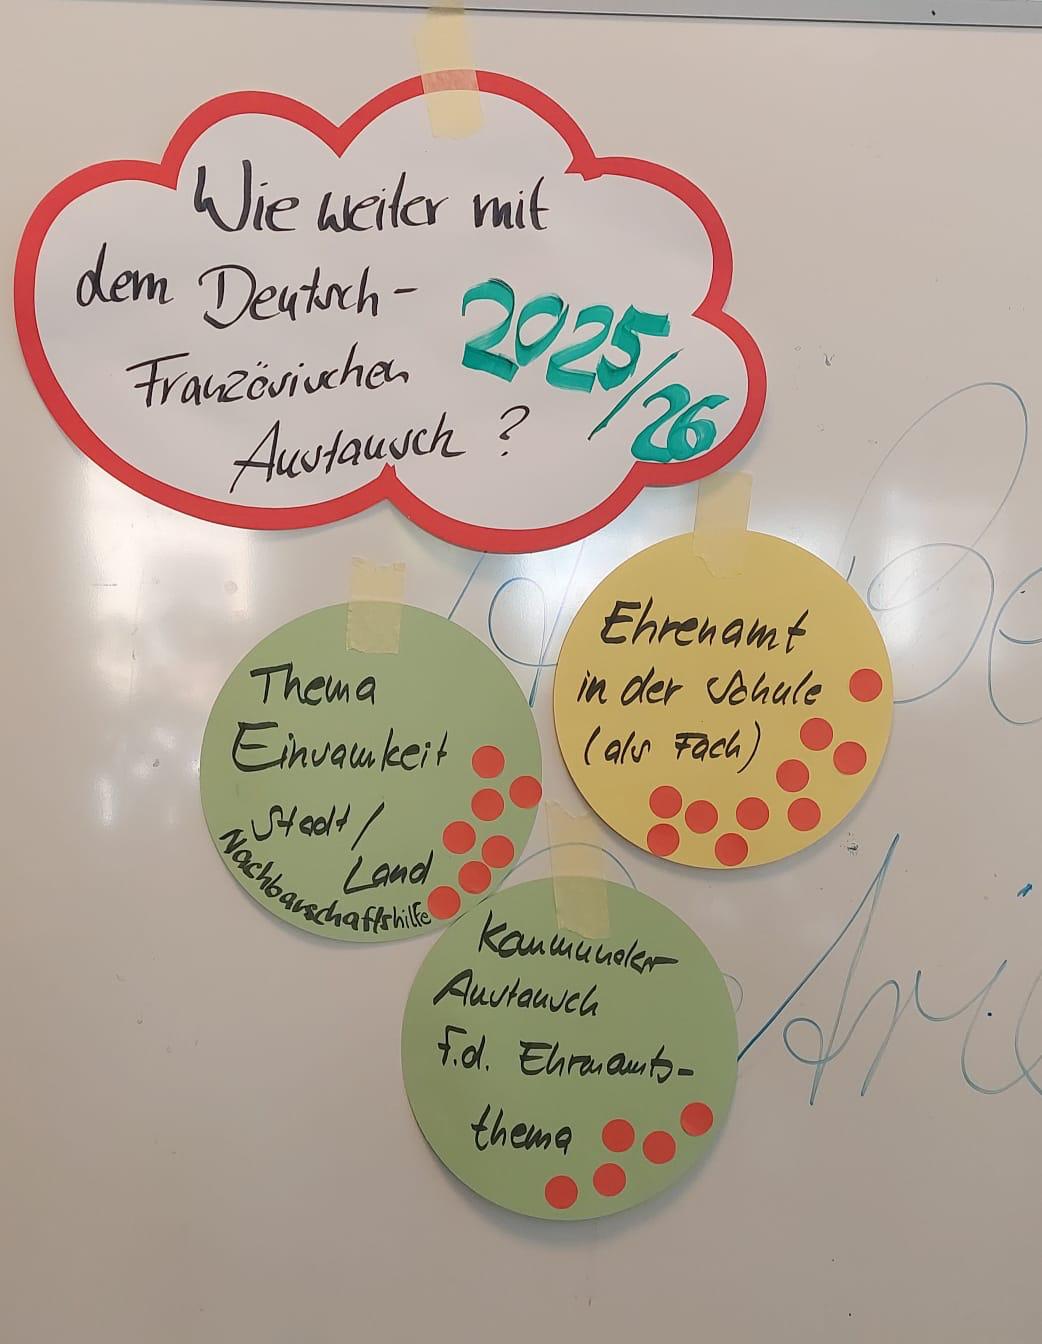 Wie weiter mit
dem Deutsch-
Französischen
Austausch ?
2025/26
Thema
Einsamkeit
Stadt/
Land
Nachbarschaftshilfe
Ehrenamt
in der Schule
(als Fach)
Kommunaler
Austausch
f.d. Ehrenamts-
thema